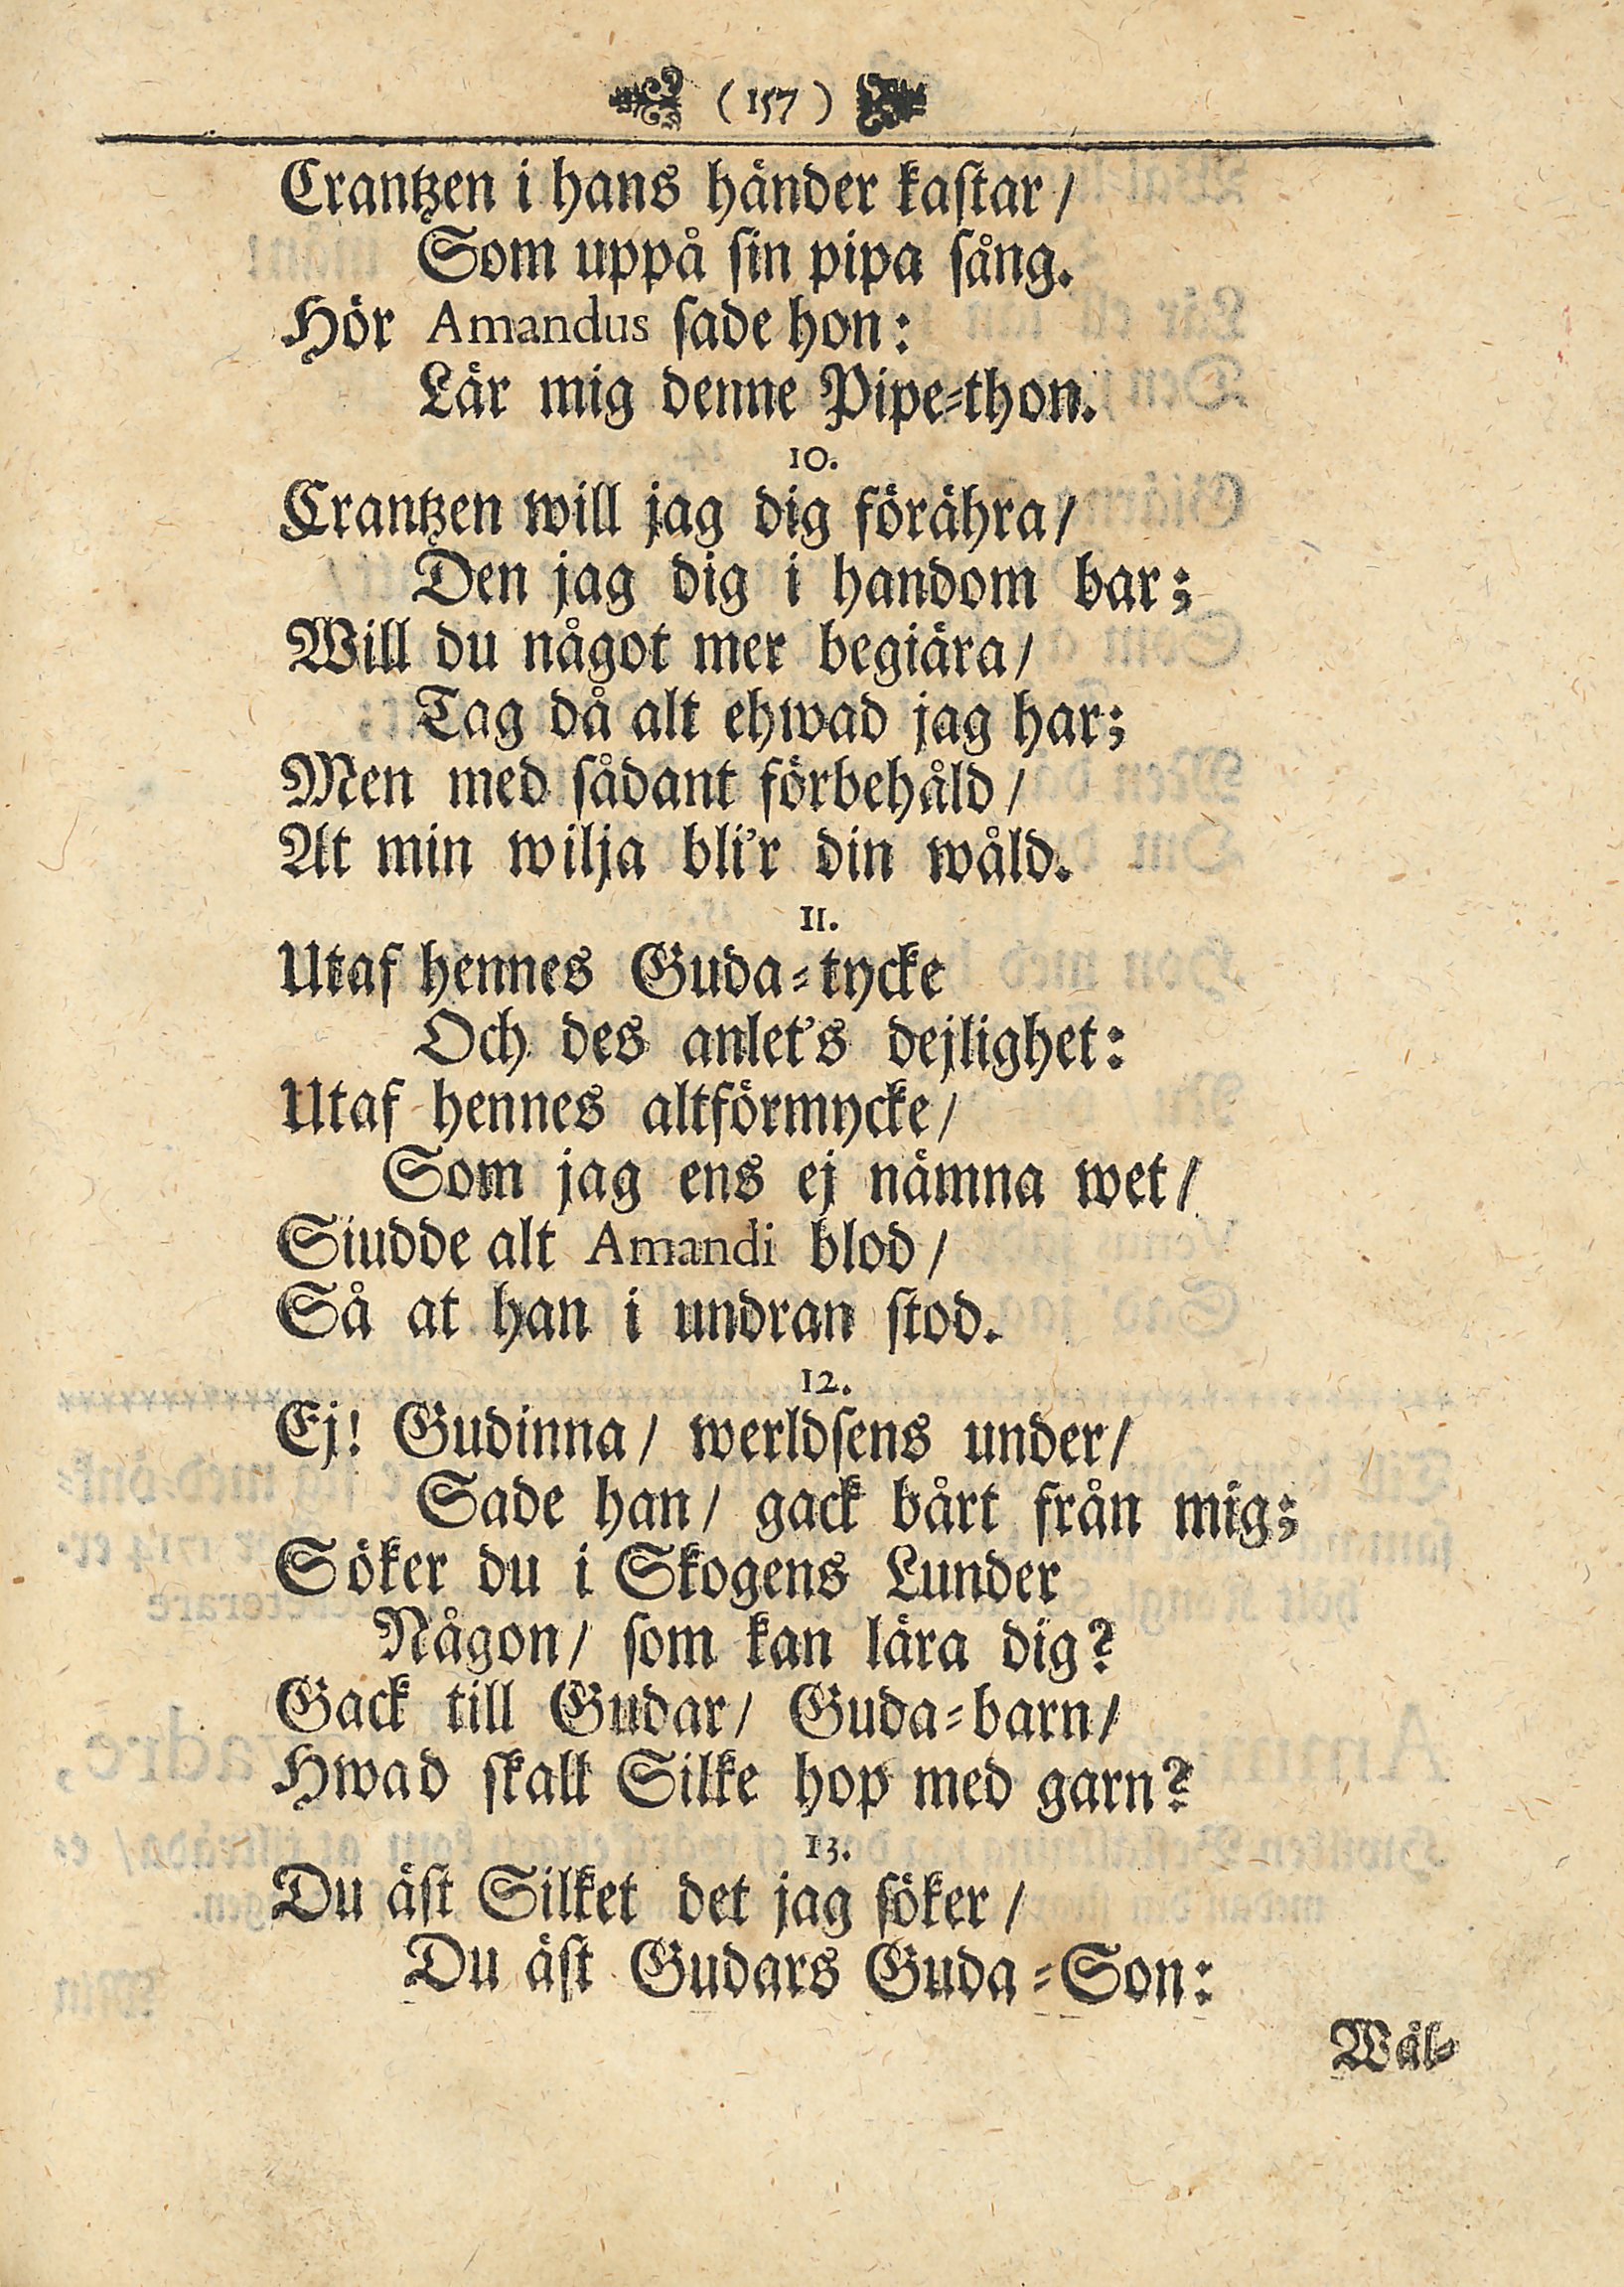 (157)
Crantzen i hans händer kastar/
Som uppå sin pipa sång.
Hör Amandus sade hon:
Lär mig denne Pipe-thon.
10.
Crantzen will jag dig förähra/
Den jag dig i handom bar;
Will du något mer begiära/
Tag då alt ehwad jag har;
Men med sådant förbehåld/
At min wilja bli'r din wåld.
11.
Utaf hennes Guda-tycke
Och des anlet's dejlighet:
Utaf hennes altförmycke/
Som jag ens ej nämna wet/
Siudde alt Amandi blod/
Så at han i undran stod.
12.
Ej! Gudinna/ werldsens under/
Sade han/ gack bårt från mig;
Söker du i Skogens Lunder
Någon/ som kan lära dig?
Gack till Gudar/ Guda-barn/
Hwad skall Silke hop med garn?
13.
Du äst Silket det jag söker/
Du äst Gudars Guda-Son:
Wäl-